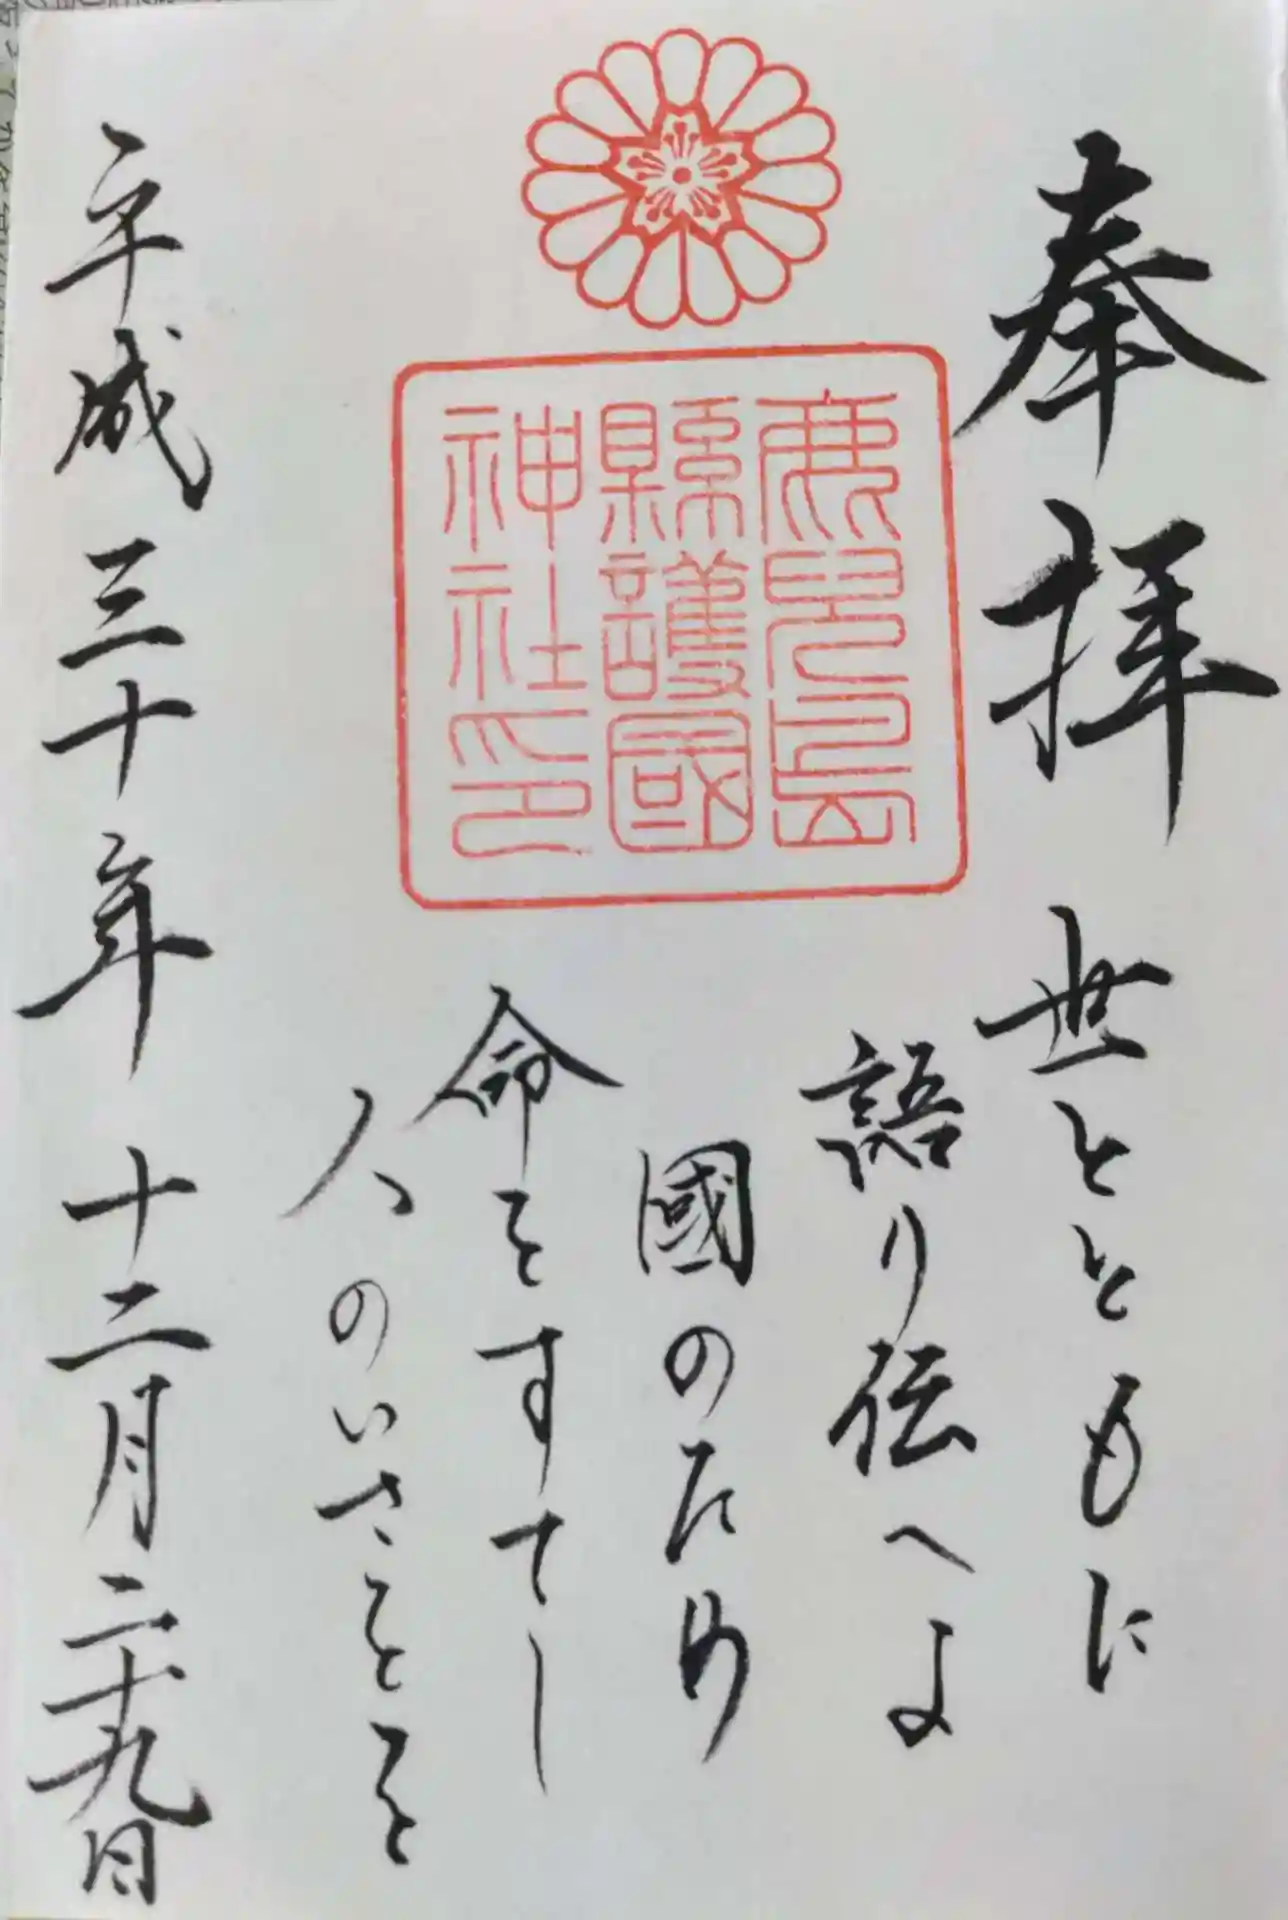 奉拝
世とともに
語り伝へよ
國のため
命をすてし
人のいさをを
鹿兒島
縣護國
神社印
平成三十年十二月二十九日